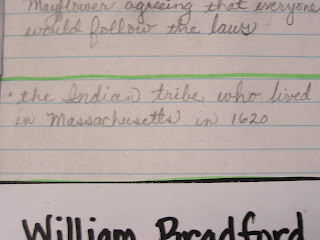 Mayflower agreeing that everyone
would follow the laws
• the Indian tribe who lived
in Massachusetts in 1620
William Bradford